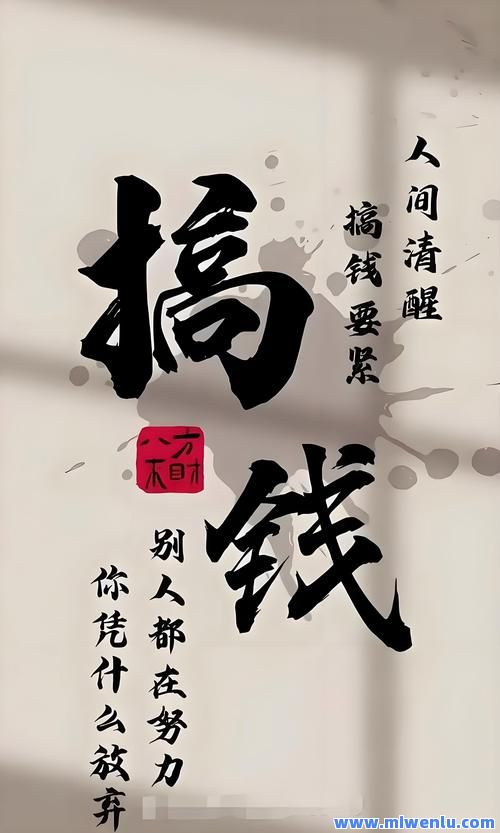 人间清醒
搞钱要紧
搞
钱
别人都在努力
你凭什么放弃
www.mlwenlu.com